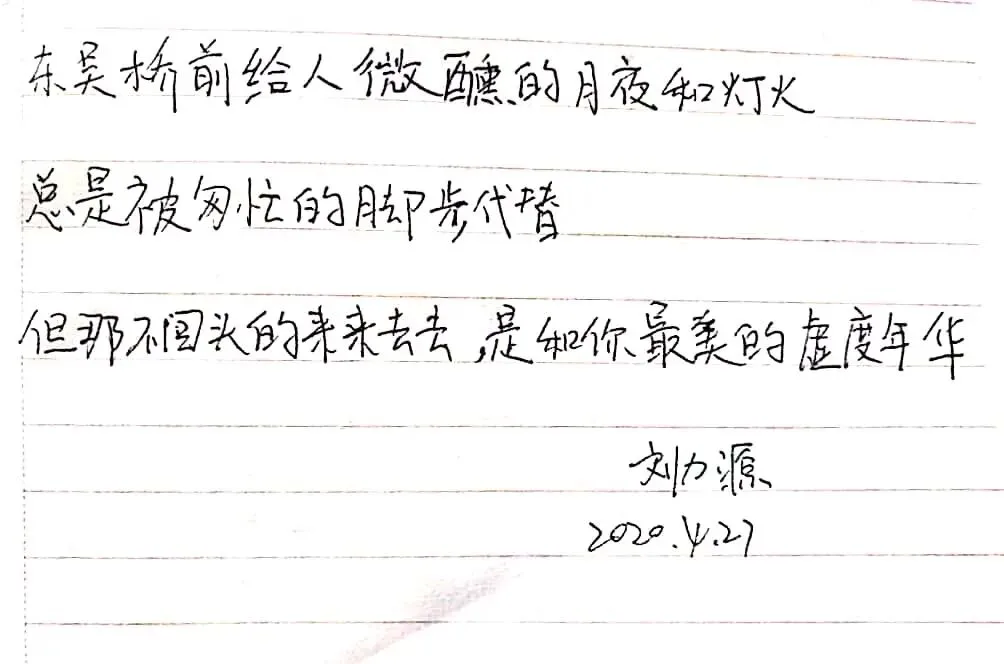 东吴桥前给人微醺的月夜和灯火
总是被匆忙的脚步代替
但那不回头的来来去去,是和你最美的虚度年华
刘力源
2020.4.27